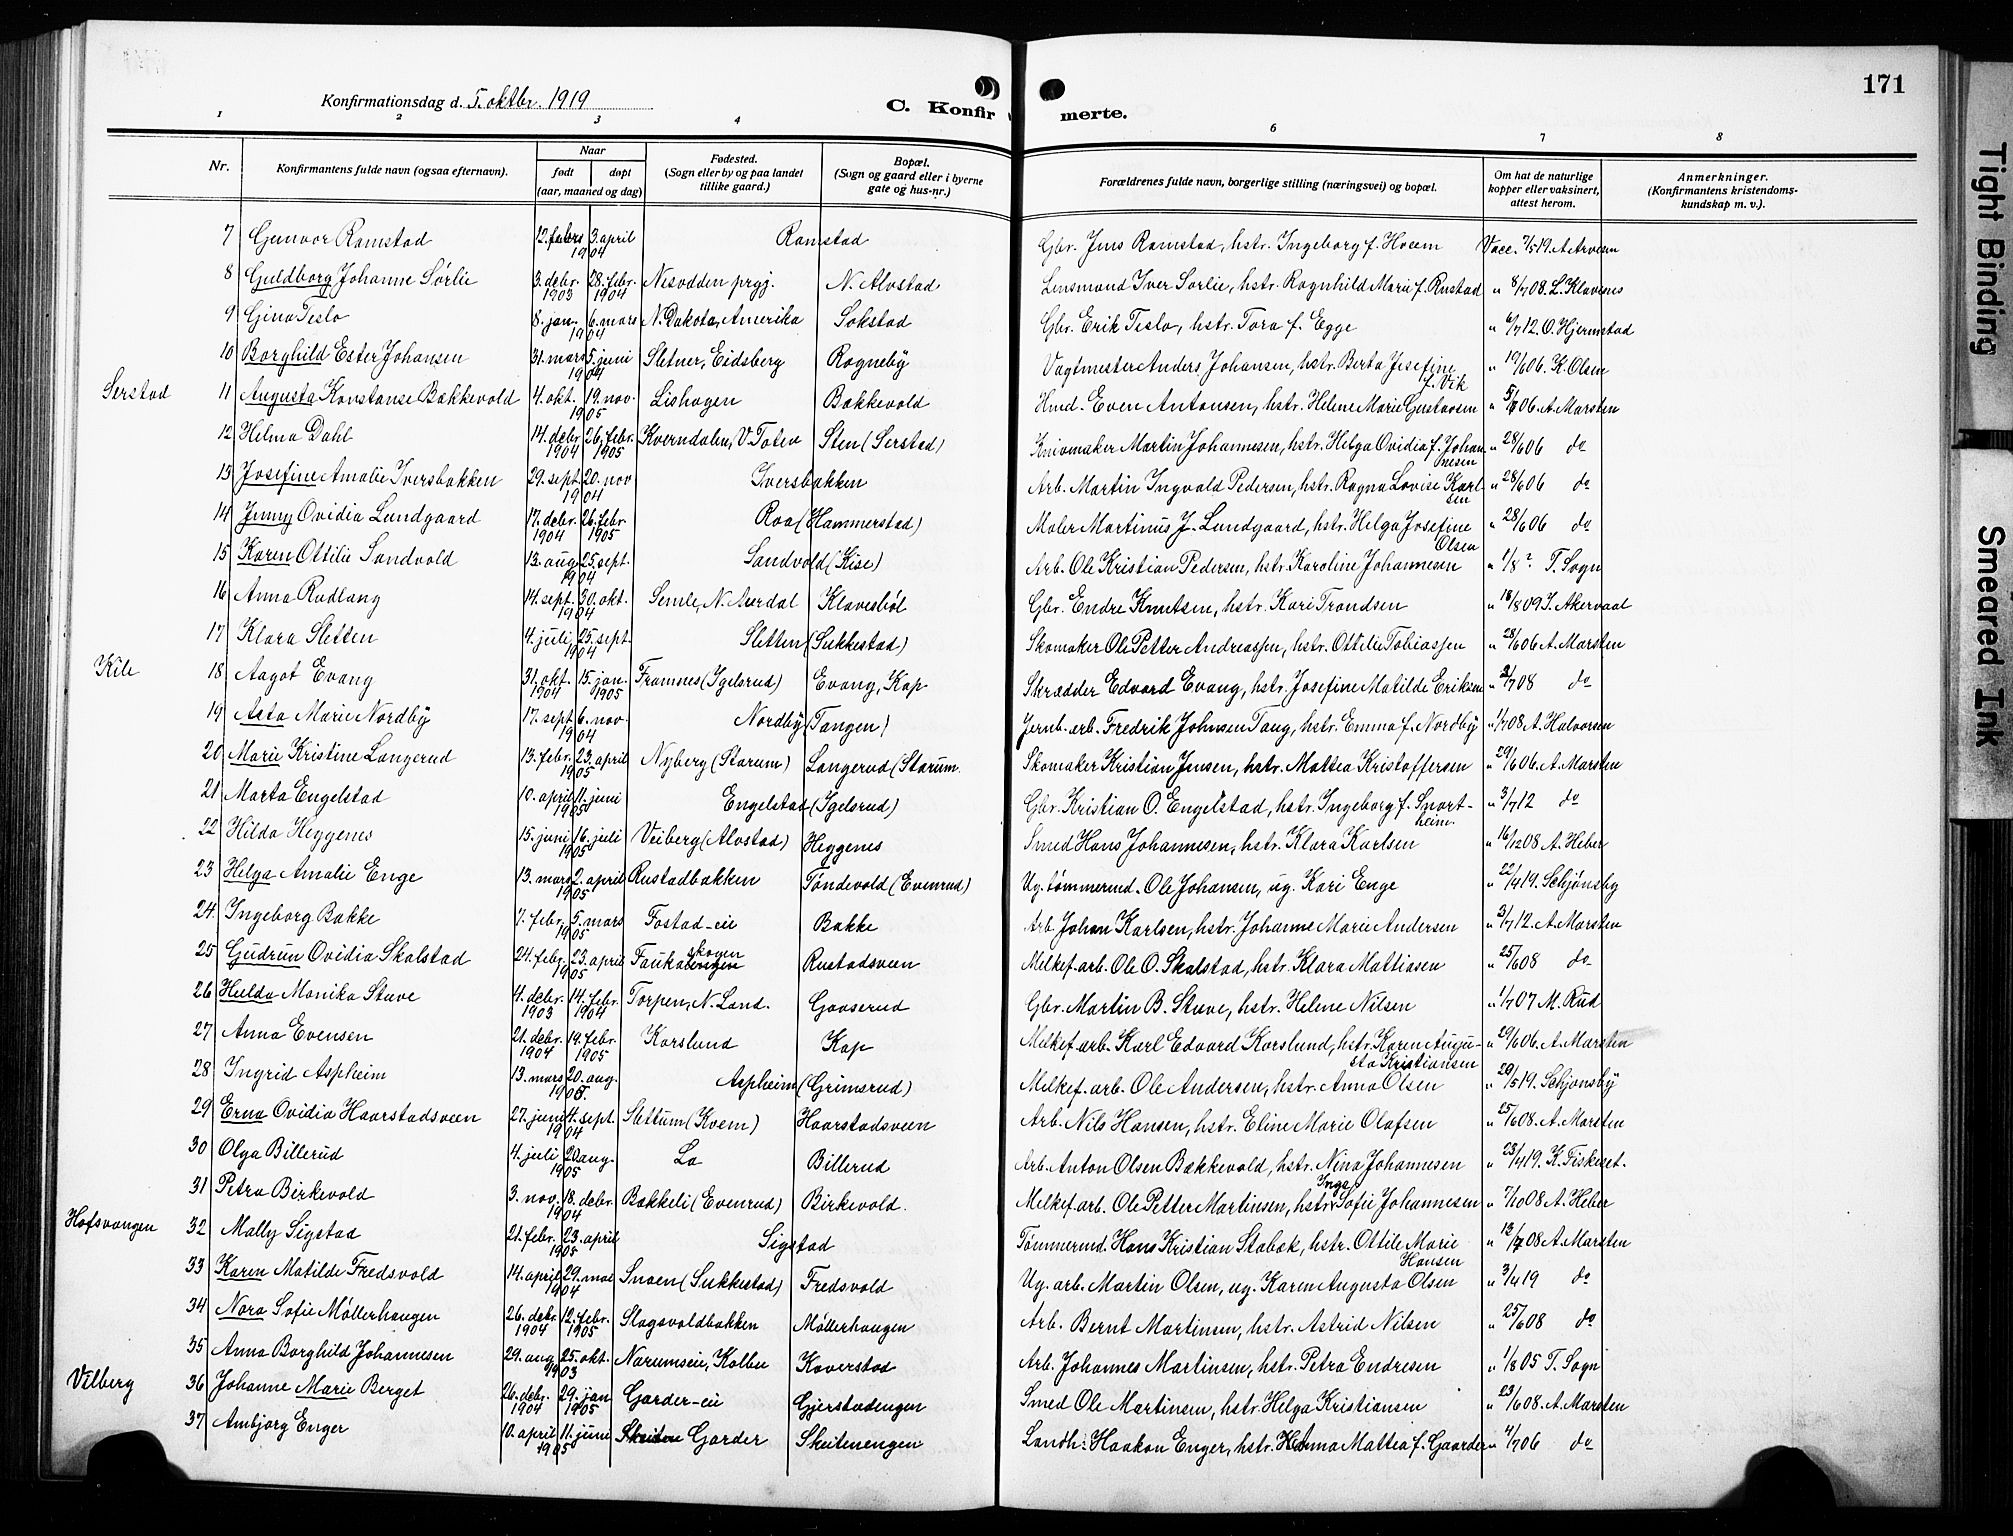 171
Konfirmationsdag d. 5. oktbr. 1919
C. Konfirmerte.
1 2 3 4 6 7 8
Nr. Konfirmantens fulde navn (ogsaa efternavn). Naar født døpt (aar, maaned og dag) Fødested. (Sogn eller by og paa landet tillike gaard.) Bopæl. (Sogn og gaard eller i byerne gate og hus-nr.) Forældrenes fulde navn, borgerlige stilling (næringsvei) og bopæl. Om hat de naturlige kopper eller vaksinert, attest herom. Anmerkninger. (Konfirmantens kristendomskundskap m. v.).
7 Gunvor Ramstad 12. febr. 3. april 1904 Ramstad Gbr. Jens Ramstad, hstr. Ingeborg f. Hoem Vacc. 7/5 19. A. Arvesen
8 Guldborg Johanne Sørlie 3. debr. 1903 28. febr. 1904 Nesodden prgj. N. Alvstad Lensmand Iver Sørlie, hstr. Ragnhild Marie f. Rustad " 8/7 08. L. Klavenes
9 Gina Teslo 8. jan. 6. mars 1904 N. Dakota, Amerika Sokstad Gbr. Erik Teslo, hstr. Tora f. Egge " 6/7 12. O. Hjermstad
10 Borghild Ester Johansen 31. mars 5. juni 1904 Sletner, Eidsberg Rogneby Vagtmester Anders Johansen, hstr. Berta Josefine f. Vik " 19/6 06. K. Olsen
Serstad 11 Augusta Konstanse Bakkevold 4. okt. 19. nov. 1905 Lishagen Bakkevold Hmd. Even Antonsen, hstr. Helene Marie Gustavsen " 5/7 06. A. Marsten
12 Helma Dahl 14. debr. 1904 26. febr. 1905 Kverndalen, V. Toten Sten (Serstad) Knivmaker Martin Johannesen, hstr. Helga Ovidia f. Johannesen " 28/6 06 do
13 Josefine Amalie Iversbakken 29. sept. 20. nov 1904 Iversbakken Arb. Martin Ingvald Pedersen, hstr. Ragna Lovise Karlsen " 28/6 06 do
14 Jenny Ovidia Lundgaard 17. debr. 1904 26. febr. 1905 Roa (Hammerstad) Maler Martinus J. Lundgaard, hstr. Helga Josefine Olsen " 28/6 06 do
15 Karen Ottilie Sandvold 13. aug. 25. sept. 1904 Sandvold (Kise) Arb. Ole Kristian Pedersen, hstr. Karoline Johannesen " 1/8 ? T. Sogn
16 Anna Rudlang 14. sept. 30. okt. 1904 Semle, N. Aurdal Klavesbøl Gbr. Endre Knutsen, hstr. Kari Trondsen " 18/8 09 J. Akervaal
17 Klara Sletten 4. juli 25. sept. 1904 Sletten (Sukkestad) Skomaker Ole Petter Andreassen, hstr. Ottilie Tobiassen " 28/6 06 A. Marsten
Kile 18 Aagot Evang 31. okt. 1904 15. jan. 1905 Framnes (Igelsrud) Evang, Kap Skrædder Edvard Evang, hstr. Josefine Matilde Eriksen " 2/7 08 do
19 Asta Marie Nordby 17. sept. 6. nov. 1904 Nordby (Tangen) Jernb. arb. Fredrik Johnsen Tang, hstr. Emma f. Nordby " 1/7 08 A. Halvorsen
20 Marie Kristine Langerud 13. febr. 23. april 1905 Nyberg (Starum) Langerud (Starum. Skomaker Kristian Jensen, hstr. Mattea Kristoffersen " 29/6 06. A. Marsten
21 Marta Engelstad 10. april 11. juni 1905 Engelstad (Igelsrud) Gbr. Kristian O. Engelstad, hstr. Ingeborg f. Snortheim. " 3/7 12 do
22 Hilda Heggenes 15. juni 16. juli 1905 Veiberg (Alvstad) Heggenes Smed Hans Johannesen, hstr. Klara Karlsen " 16/12 08 A. Heber
23 Helga Amalie Enge 13. mars 2. april 1905 Rustadbakken Tøndevold (Evenrud) Ug. tømmermd. Ole Johansen, ug. Kari Enge " 22/4 19. Schjønsby
24 Ingeborg Bakke 7. febr. 5. mars 1905 Fostad-eie Bakke Arb. Johan Karlsen, hstr. Johanne Marie Andersen " 3/7 12. A. Marsten
25 Gudrun Ovidia Skalstad 24. febr. 23. april 1905 Faukalskogen Rustadsveen Melkef. arb. Ole O. Skalstad, hstr. Klara Mattiasen " 25/6 08 do
26 Hulda Monika Stuve 4. debr. 1903 14. febr. 1904 Torpen, N. Land. Gaaserud Gbr. Martin B. Stuve, hstr. Helene Nilsen " 1/7 07 M. Rud
27 Anna Evensen 21. debr. 1904 19. febr. 1905 Korslund Kap Melkef. arb. Karl Edvard Korslund, hstr. Karen Augusta Kristiansen " 29/6 06. A. Marsten
28 Ingrid Aspheim 13. mars 20. aug. 1905 Aspheim (Grimsrud) Melkef. arb. Ole Andersen, hstr. Anna Olsen " 20/5 19. Schjønsby
29 Erna Ovidia Haarstadsveen 27. juni 4. sept. 1904 Slettum (Kvem) Haarstadsveen Arb. Nils Hansen, hstr. Eline Marie Olafsen " 25/6 08. A. Marsten
30 Olga Billerud 4. juli 20 aug. 1905 Lo Billerud Arb. Anton Olsen Bækkevold, hstr. Nina Johannesen " 23/4 19. K. Fiskeset.
31 Petra Birkevold 3. nov. 18. debr. 1904 Bakkeli (Evenrud) Birkevold. Melkef. arb. Ole Petter Martinsen, hstr. Inga Sofie Johannesen " 7/10 08 A. Heber
Hofsvangen 32 Mally Sigstad 21. febr. 23. april 1905 Sigstad Tømmermd. Hans Kristian Stabæk, hstr. Ottile Marie Hansen " 13/7 08 A. Marsten
33 Karen Matilde Fredsvold 14. april 29. mai 1904 Snoen (Sukkestad) Fredsvold Ug. arb. Martin Olsen, ug. Karen Augusta Olsen " 3/4 19 do
34 Nora Sofie Møllerhaugen 26. debr. 1904 12. febr. 1905 Slagsvoldbakken Møllerhaugen Arb. Bernt Martinsen, hstr. Astrid Nilsen " 25/6 08 do
35 Anna Borghild Johannesen 29. aug. 25. okt. 1903 Narumseie, Kolbu Kaverstad Arb. Johannes Martinsen, hstr. Petra Endresen " 1/8 05 T. Sogn
Vilberg 36 Johanne Marie Berget 26. debr. 1904 29. jan 1905 Garder-eie Gjerstadengen Smed Ole Martinsen, hstr. Helga Kristiansen " 23/6 08. A. Marsten
37 Ambjørg Enger 10. april 11. juni 1905 Garder Skeitenengen Landh. Haakon Enger, hstr. Anna Mattea f. Gaarder " 4/7 06 do
Tight Binding
Smeared Ink